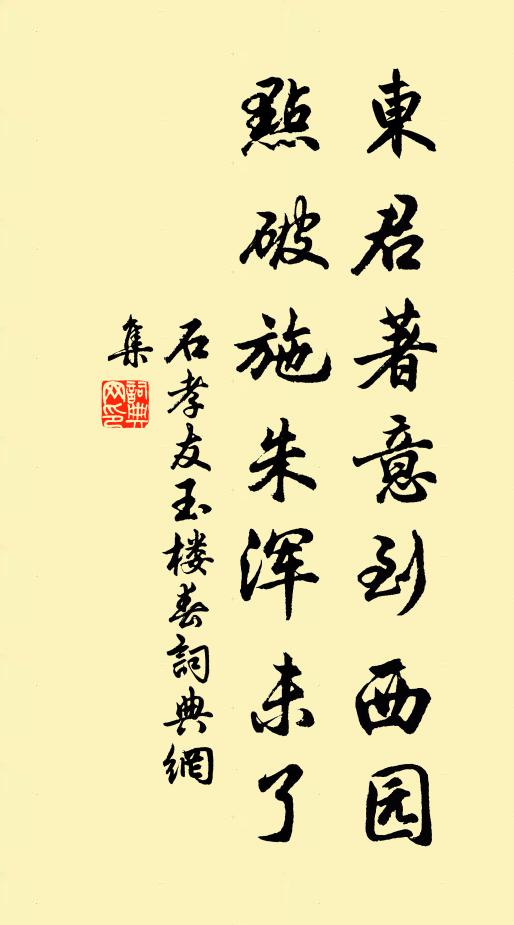 東君著意到西园
點破施朱浑未了
石孝友玉楼春詞典網
集
詞典网印